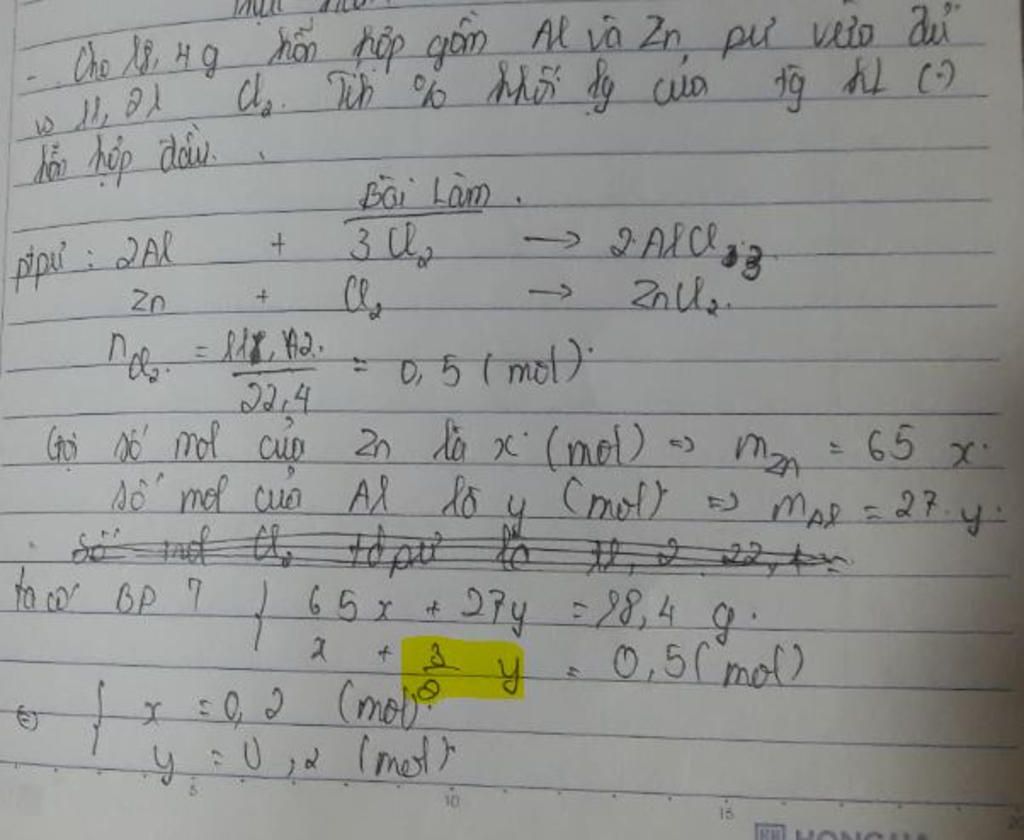 - Cho 18,4g hỗn hợp gồm Al và Zn pư vừa đủ
vs 11,2l Cl₂. Tính % khối lg của tg kl (-)
hỗn hợp đầu.
Bài Làm.
ptpư : 2Al + 3Cl₂ → 2AlCl₃
Zn + Cl₂ → ZnCl₂.
n_Cl₂ = 11,2 / 22,4 = 0,5 (mol)
Gọi số mol của Zn là x (mol) => m_Zn = 65 x.
số mol của Al là y (mol) => m_Al = 27.y.
ta có { 65x + 27y = 18,4 g.
x + 3/2 y = 0,5 (mol)
<=> { x = 0,2 (mol)
y = 0,2 (mol)
5 10 15 20